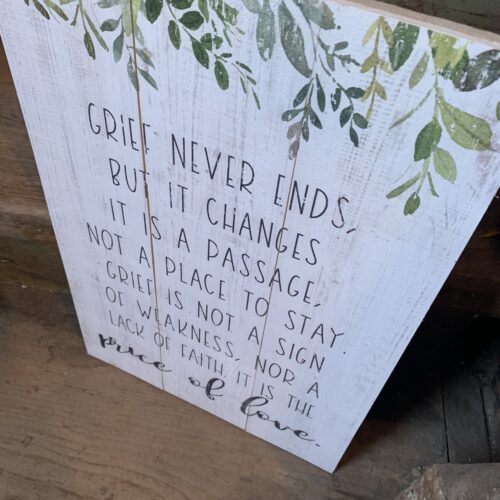 GRIEF NEVER ENDS,
BUT IT CHANGES
IT IS A PASSAGE,
NOT A PLACE TO STAY.
GRIEF IS NOT A SIGN
OF WEAKNESS, NOR A
LACK OF FAITH IT IS THE
price of love.